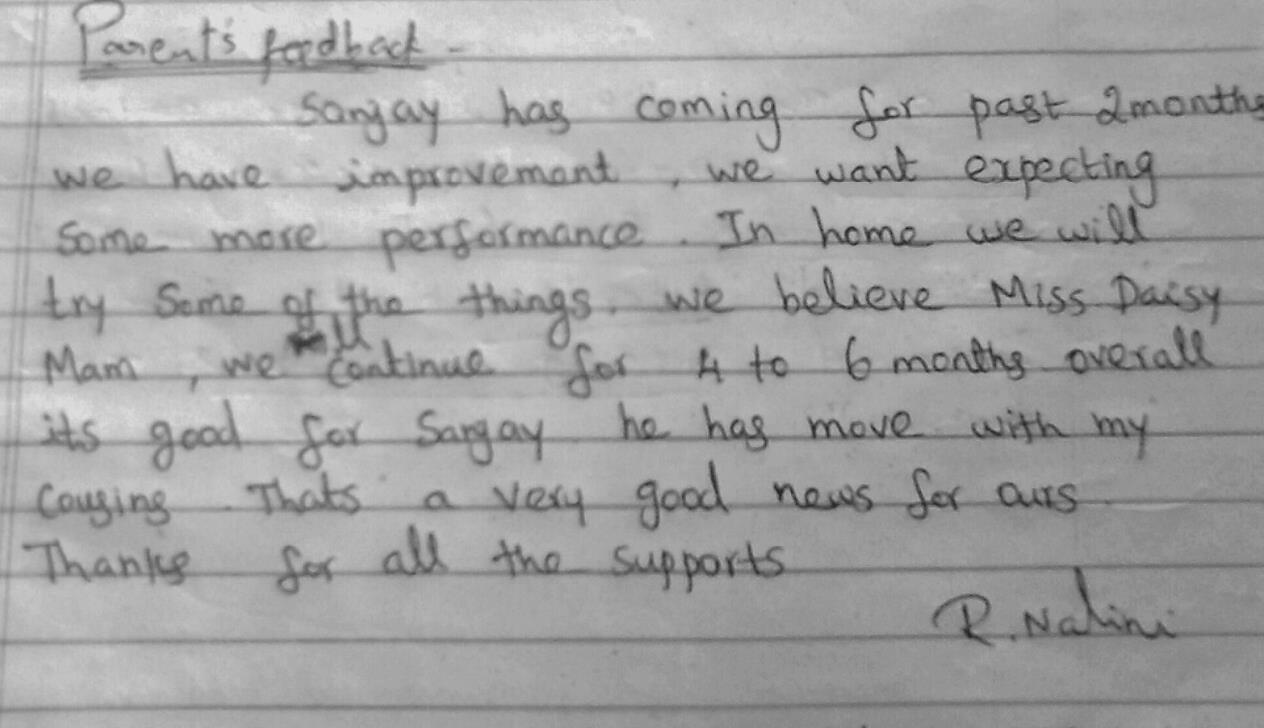 Parent's feedback -
Sanjay has coming for past 2months
we have improvement, we want expecting
some more performance. In home we will
try some of the things. we believe Miss Daisy
Mam, we will continue for 4 to 6 months overall
its good for Sanjay he has move with my
cousing. Thats a very good news for ours.
Thanks for all the supports
R. Nalini